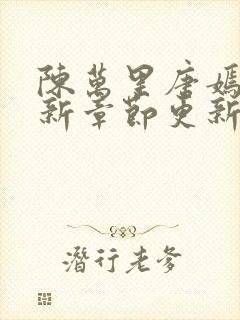 陳萬里唐嫣
新章節更新
潛行老爹